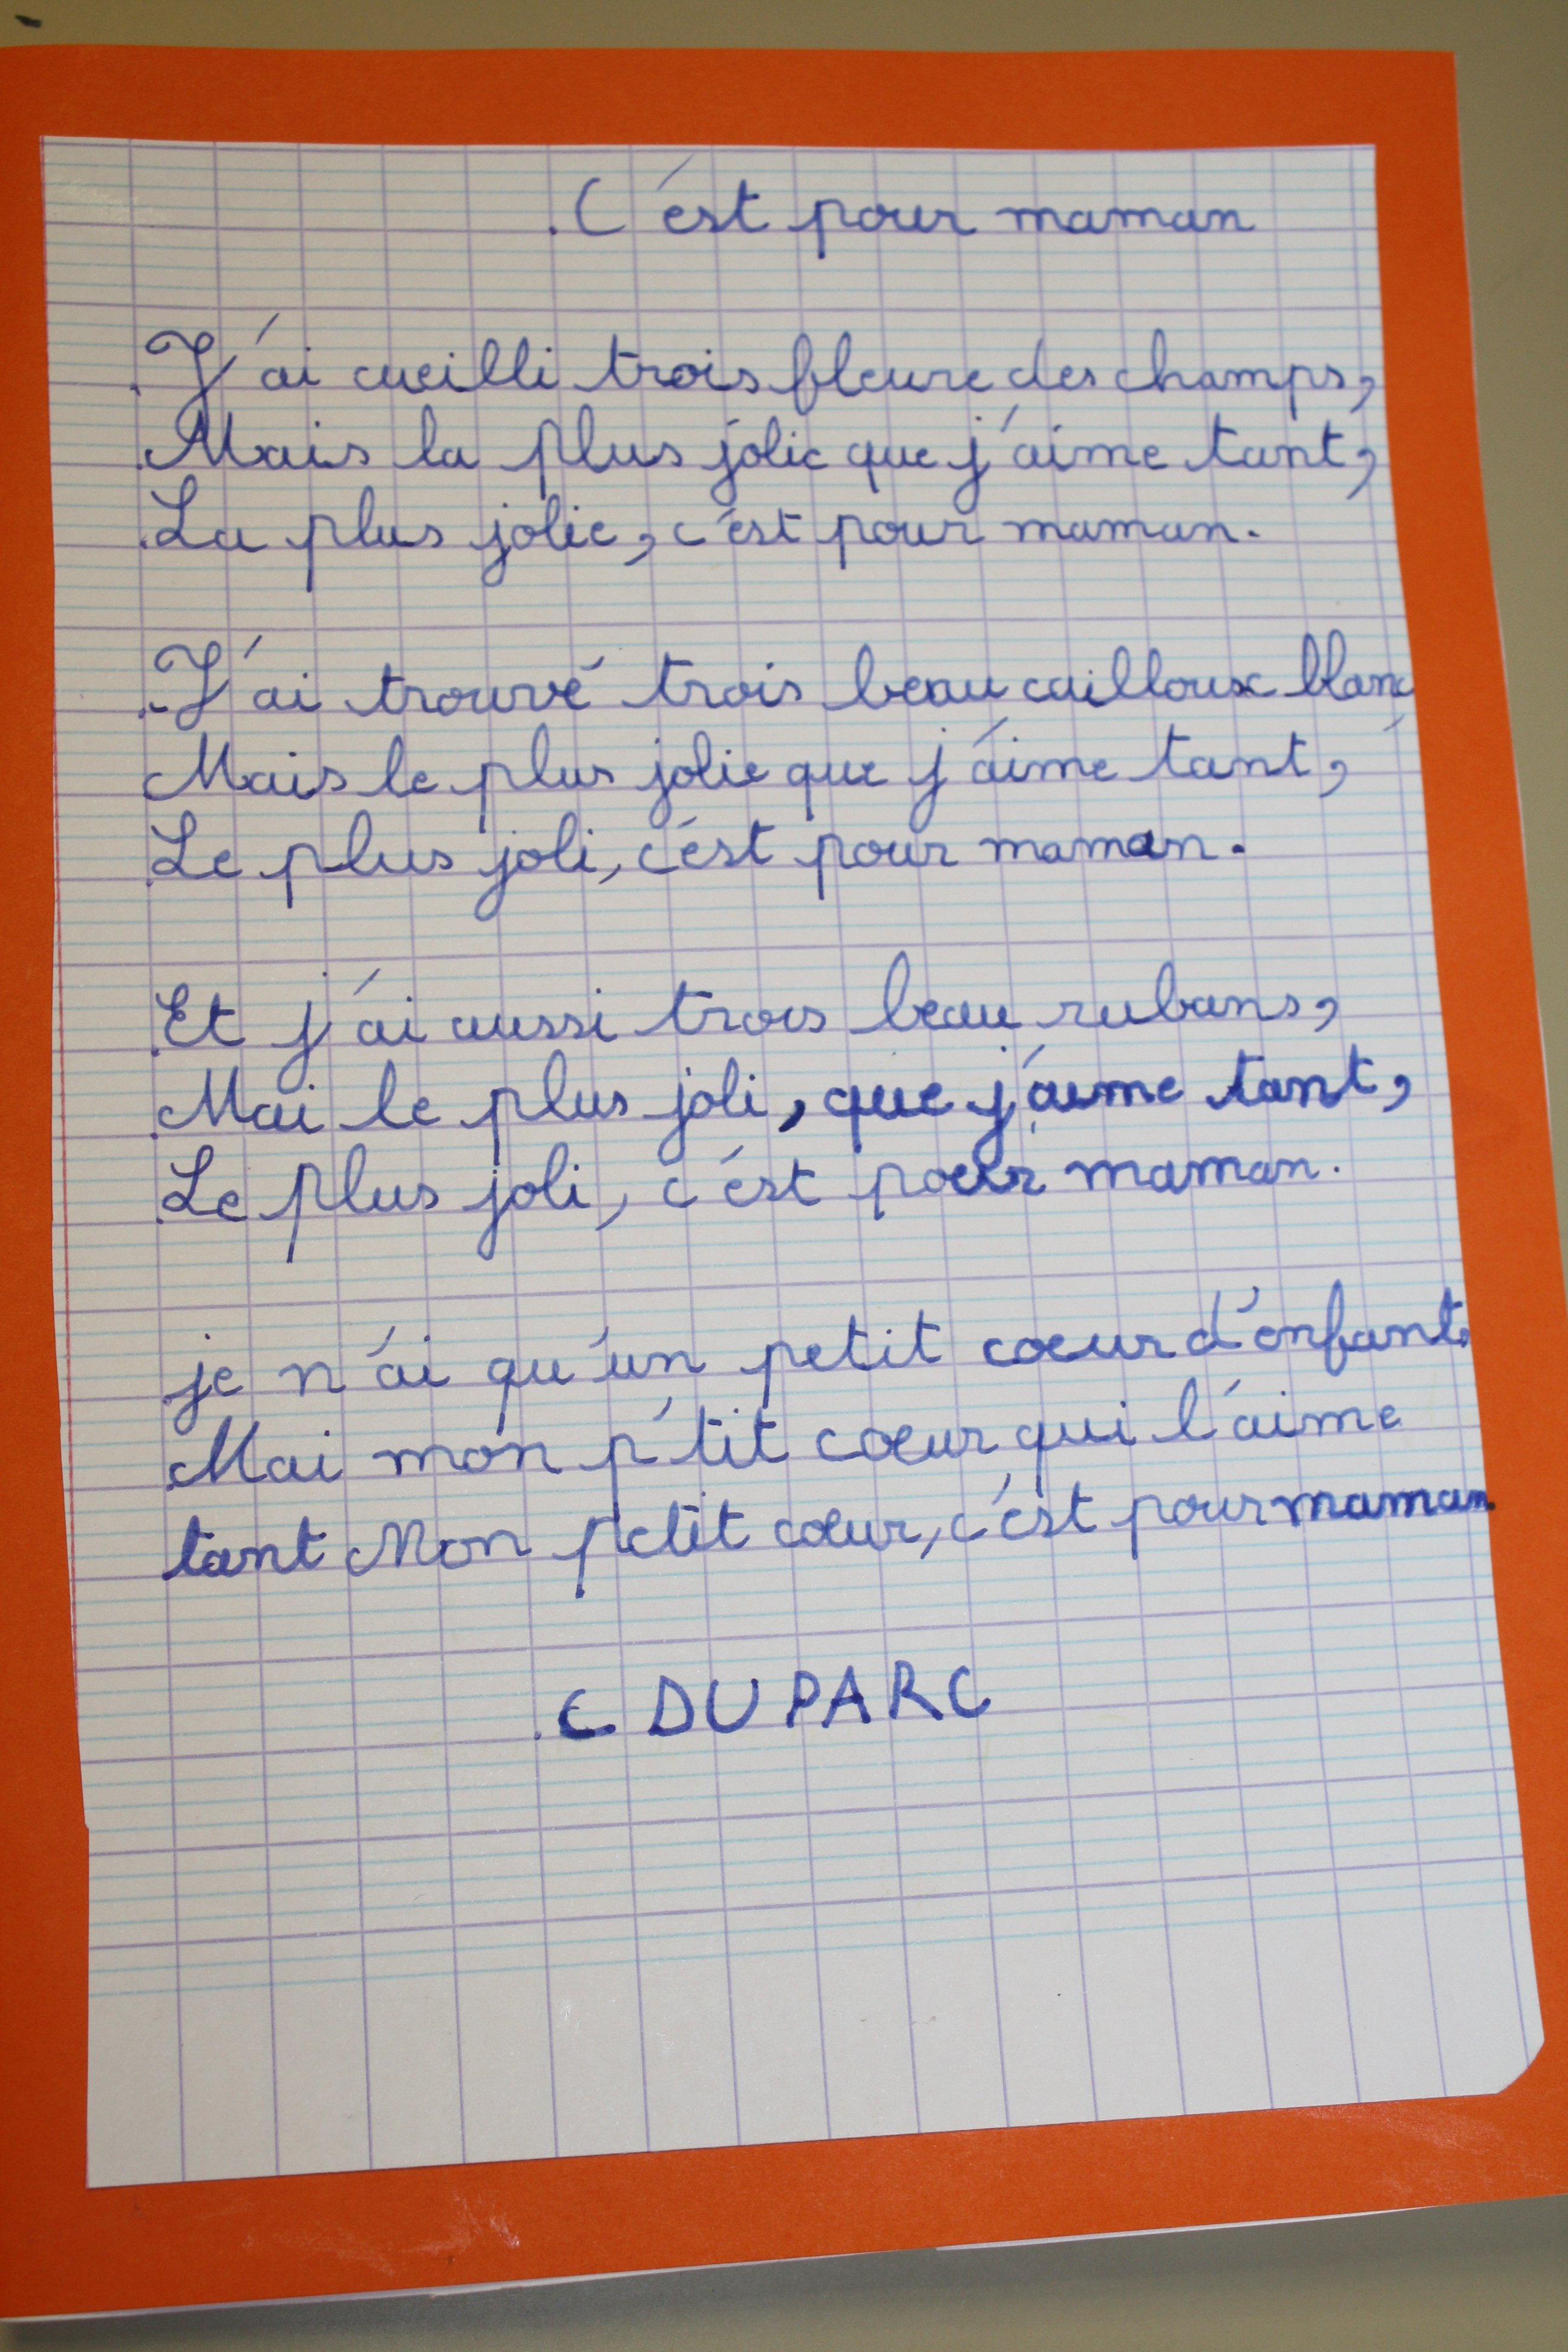 C'est pour maman
J'ai cueilli trois fleure des champs,
Mais la plus jolie que j'aime tant,
La plus jolie, c'est pour maman.
J'ai trouvé trois beau cailloux blanc
Mais le plus jolie que j'aime tant,
Le plus joli, c'est pour maman.
Et j'ai aussi trois beau rubans,
Mai le plus joli, que j'aime tant,
Le plus joli, c'est pour maman.
je n'ai qu'un petit cœur d'enfant.
Mai mon p'tit cœur qui l'aime
tant Mon petit cœur, c'est pour maman.
C DUPARC